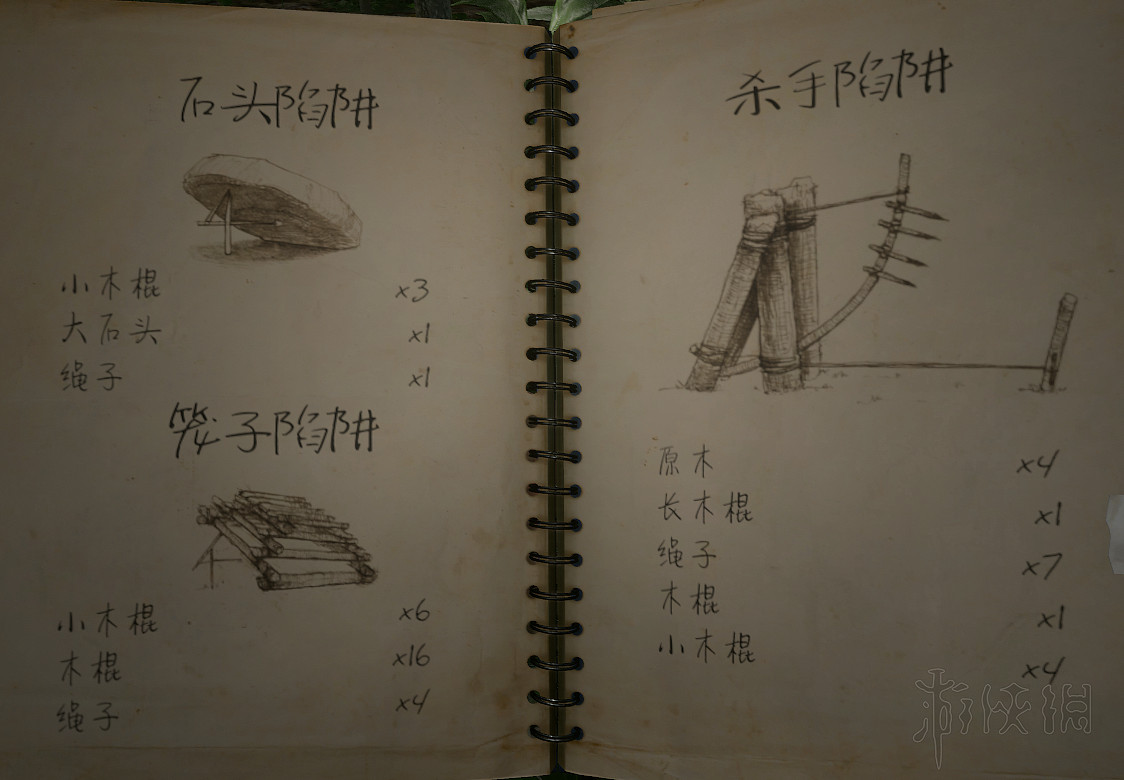 石头陷阱
小木棍 x3
大石头 x1
绳子 x1
笼子陷阱
小木棍 x6
木棍 x16
绳子 x4
杀手陷阱
原木 x4
长木棍 x1
绳子 x7
木棍 x1
小木棍 x4
游侠网